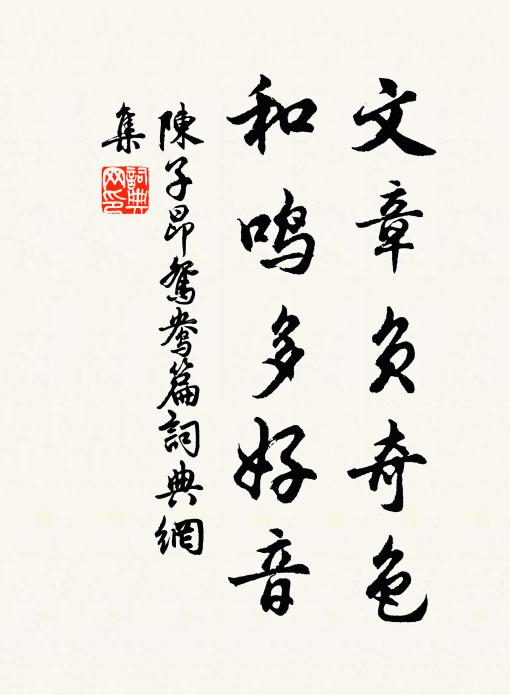 文章负奇色
和鸣多好音
陳子昂鴛鴦篇詞典網
集
詞典
网印